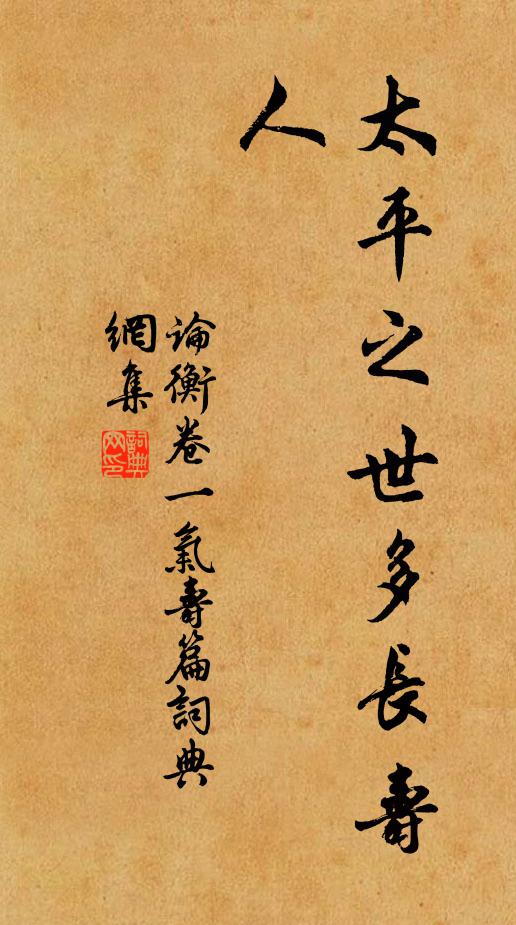 太平之世多長壽
人
論衡卷一氣壽篇詞典
網集
詞典
网印